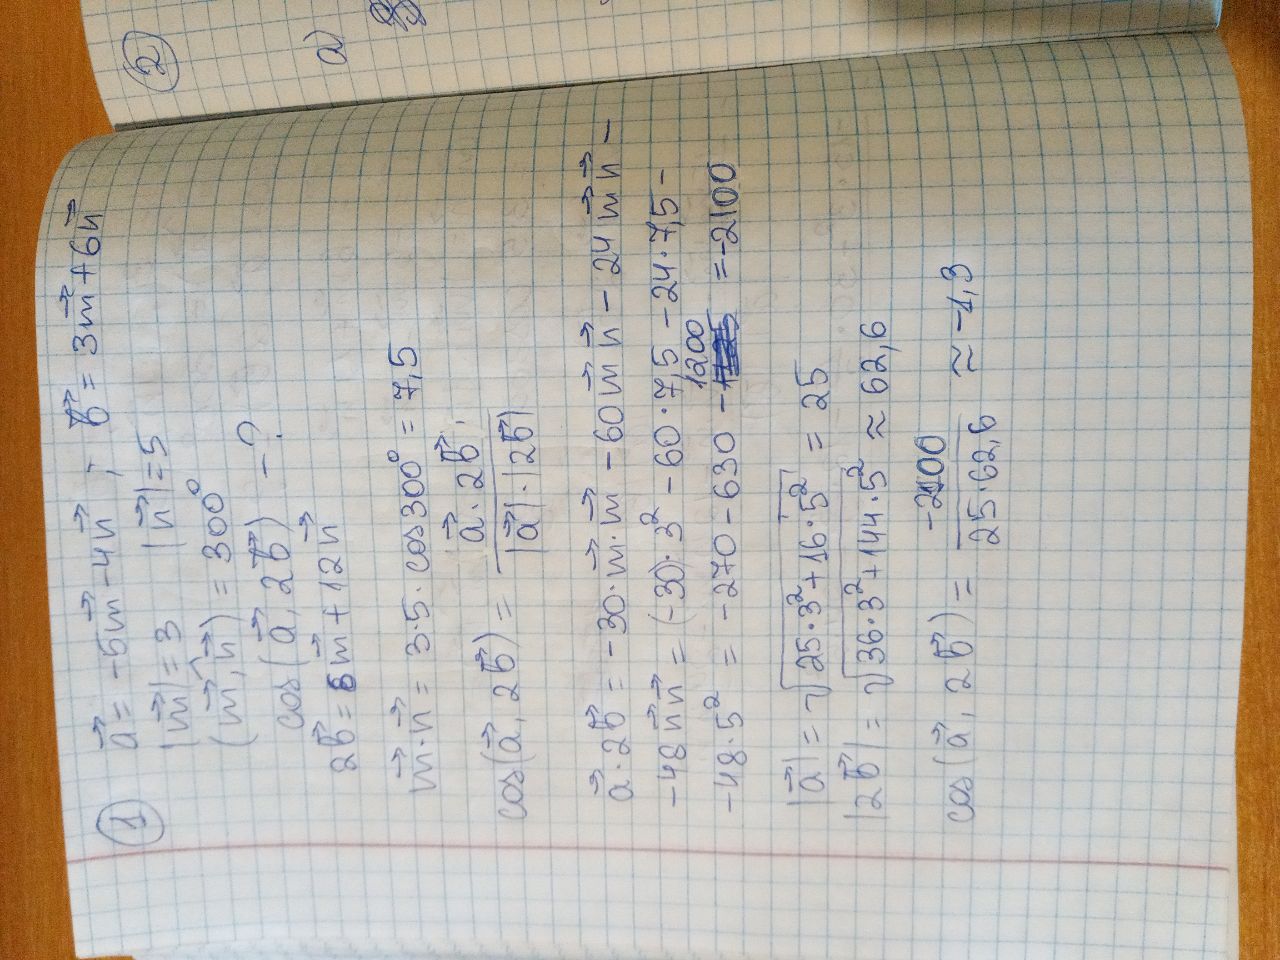 1 a⃗ = -5m⃗ - 4n⃗ ; b⃗ = 3m⃗ + 6n⃗
|m⃗| = 3 |n⃗| = 5
(m⃗,^n⃗) = 300°
cos(a⃗, 2b⃗) - ?
2b⃗ = 6m⃗ + 12n⃗
m⃗·n⃗ = 3·5·cos300° = 7,5
cos(a⃗, 2b⃗) = (a⃗·2b⃗)/(|a⃗|·|2b⃗|)
a⃗·2b⃗ = -30·m⃗·m⃗ - 60m⃗n⃗ - 24m⃗n⃗ -
-48n⃗n⃗ = (-30)·3² - 60·7,5 - 24·7,5 -
-48·5² = -270 - 630 - 1200 = -2100
|a⃗| = √(25·3²+16·5²) = 25
|2b⃗| = √(36·3²+144·5²) ≈ 62,6
cos(a⃗, 2b⃗) = -2100/(25·62,6) ≈ -1,3
2
a)